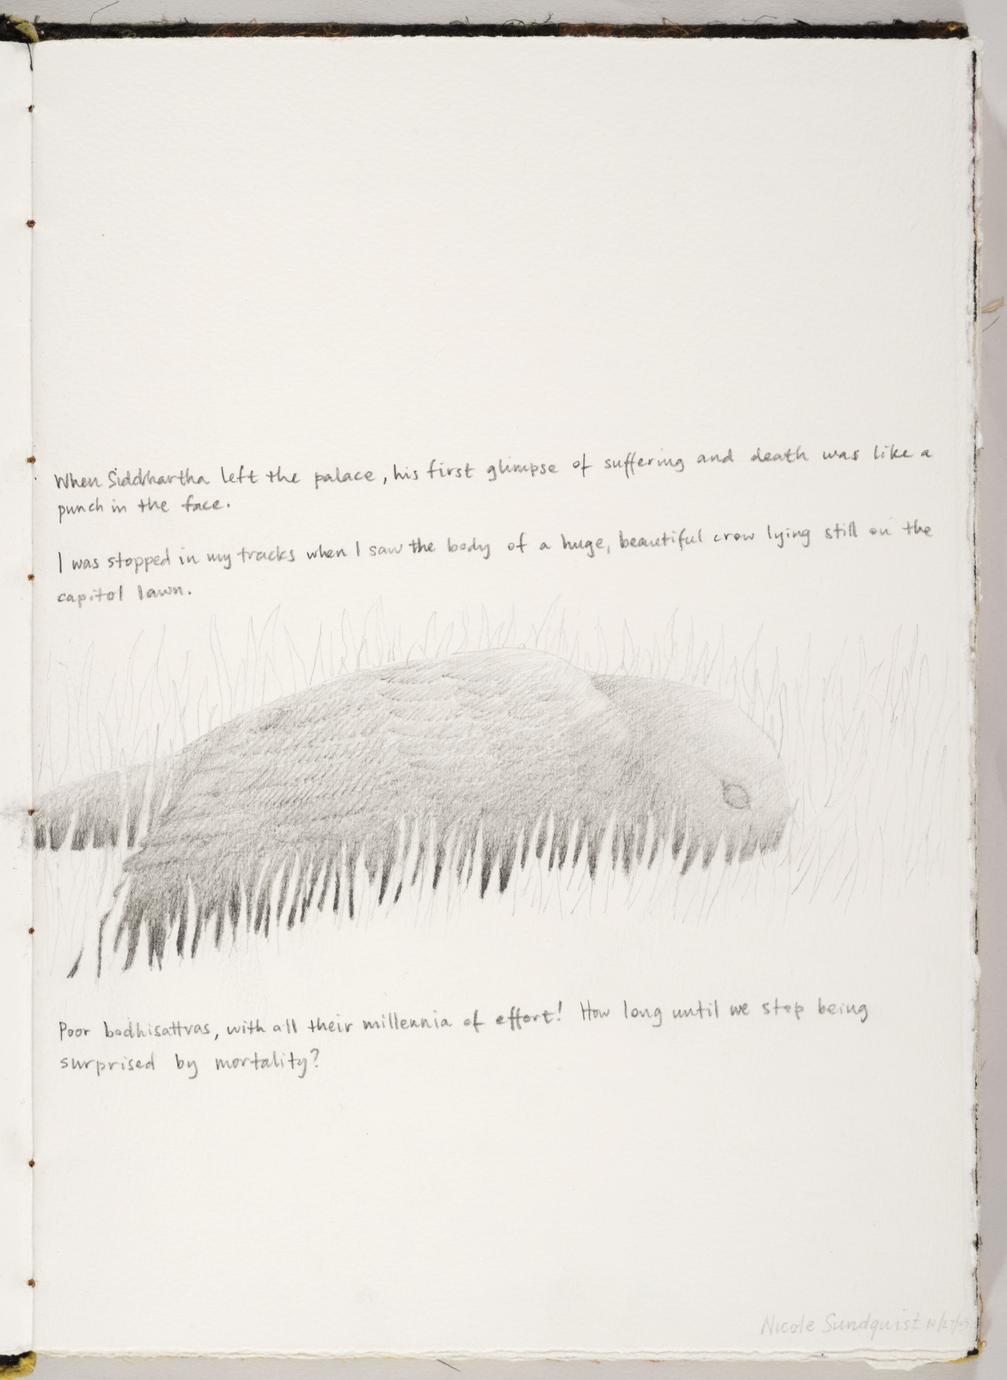 When Siddhartha left the palace, his first glimpse of suffering and death was like a
punch in the face.
I was stopped in my tracks when I saw the body of a huge, beautiful crow lying still on the
capitol lawn.
Poor bodhisattvas, with all their millennia of effort! How long until we stop being
surprised by mortality?
Nicole Sundquist